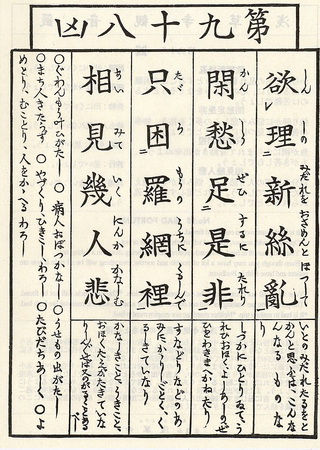 第九十八凶
欲理新絲亂
しんしの みだれを おさめんと ほつして
いとのみだれたるをと
かんと思ふは、こんな
んなるものな
り
閑愁足是非
かんしう ぜひ するに たれり
しづかにひとりゐて、う
れひおほく、よしあしのぜ
ひわきまへかねたり
只困羅網裡
たゞ らもうの うちに くるしんで
すなどりなどのあ
みに、かゝりしごとく、く
るしきていなり
相見幾人悲
あいみて いくにんか かなしむ
かなしきこと、うきこと、
おほくたえがたきていな
り
○ぐわんもう叶ひがたし ○病人おぼつかなし ○うせもの出がたし
○まち人きたらず ○やづくり、ひきこしわろし ○たびだちあしし ○よ
めとり、むことり、人をかゝへるわろし